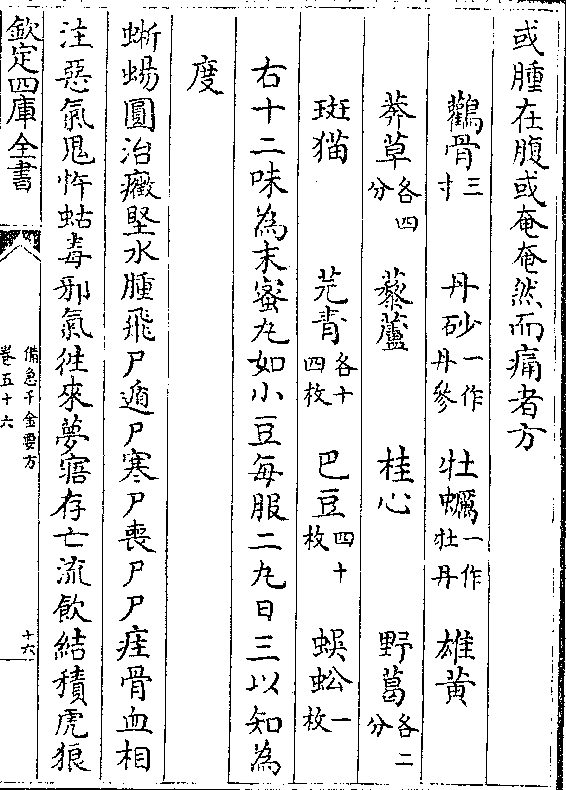 或腫在腹或奄奄然而痛者方
鸛骨三寸 丹砂一作丹參 牡蠣一作牡丹 雄黃
莽草各四分 藜蘆 桂心 野葛各二分
斑猫 芫青各十四枚 巴豆四十枚 蜈蚣一枚
右十二味為末蜜丸如小豆每服二丸日三以知為
度
蜥蜴圓治癥堅水腫飛尸遁尸寒尸喪尸尸疰骨血相
注惡氣鬼忤蛊毒邪氣徃來夢寤存亡流飲結積虎狼
欽定四庫全書
備急千金要方
卷五十六
十六